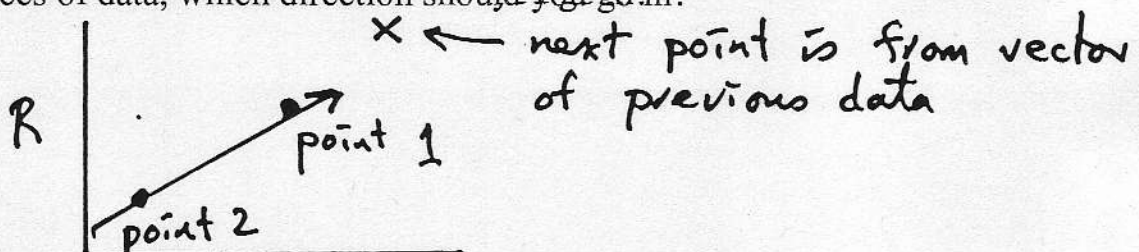 ces of data, which direction should
× ← next point is from vector
of previous data
R
point 1
point 2